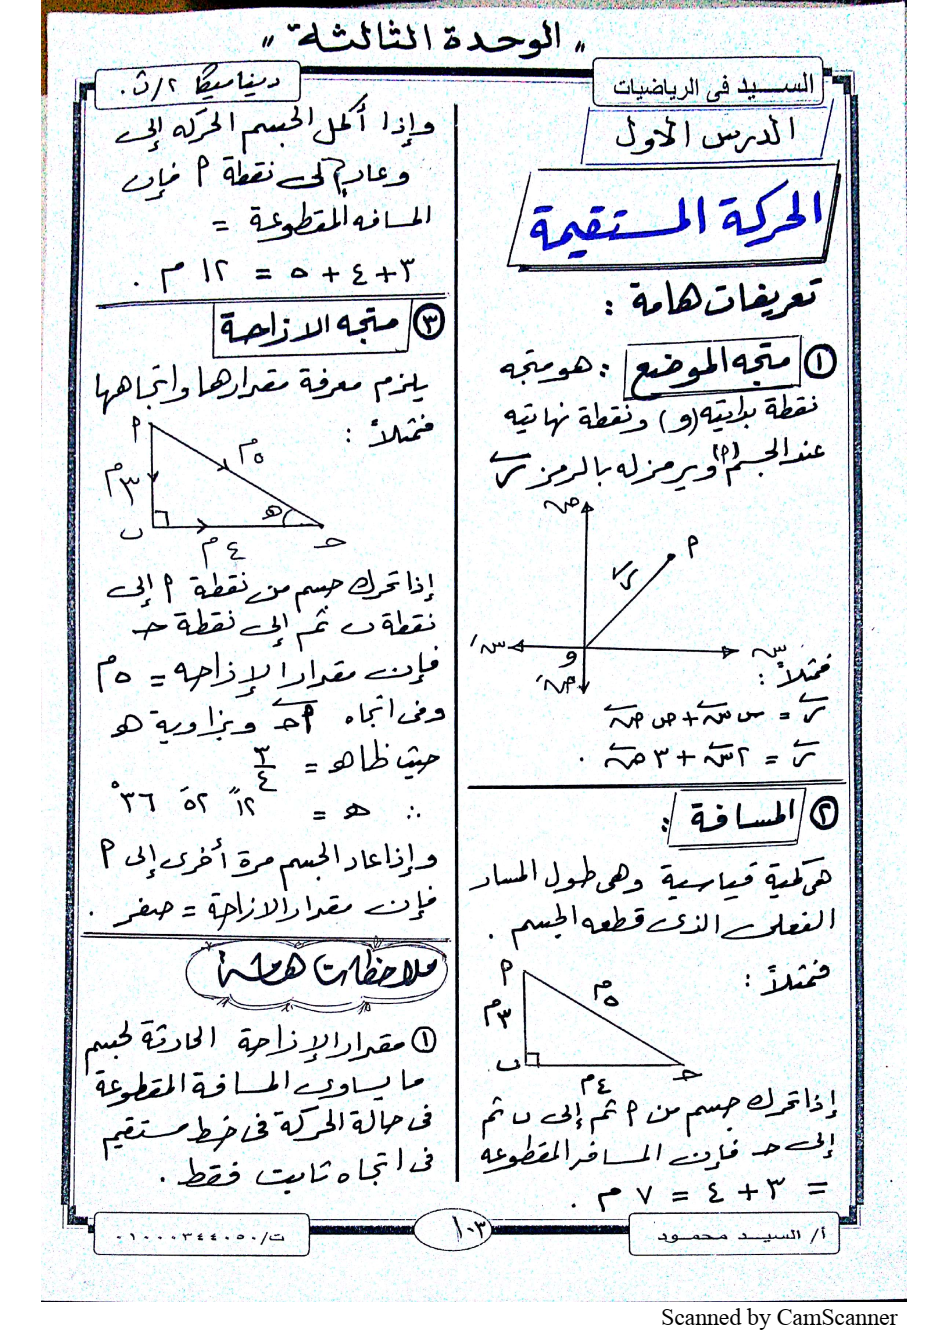 " الوحدة الثالثة "
السيد فى الرياضيات
ديناميكا ٢/ث.
الدرس الأول
الحركة المستقيمة
تعريفات هامة :
١ متجه الموضع : هو متجه
نقطة بدايته (و) ونقطة نهايته
عند الجسم (م) ويرمز له بالرمز ر
ص
م
ر
س
س/
و
ص/
فمثلاً :
ر = س س + ص ص
ر = ٢ س + ٣ ص .
٢ المسافة :
هى كمية قياسية وهى طول المسار
الفعلى الذى قطعه الجسم .
فمثلاً :
م
٥م
٣م
ب
٤م
حـ
إذا تحرك جسم من م ثم إلى ب ثم
إلى حـ فإن المسافه المقطوعه
= ٣ + ٤ = ٧ م .
وإذا أكمل الجسم الحركه إلى
وعاد إلى نقطة م فإن
المسافه المقطوعة =
٣ + ٤ + ٥ = ١٢ م .
٣ متجه الازاحة
يلزم معرفة مقدارها واتجاهها
فمثلاً :
م
٥م
٣م
هـ
ب
٤م
حـ
إذا تحرك جسم من نقطة م إلى
نقطة ب ثم إلى نقطة حـ
فإن مقدار الإزاحه = ٥م
وفى اتجاه م حـ وبزاوية هـ
حيث ظا هـ = ٣/٤
∴ هـ = ١٢ ً ٥٢ َ ٣٦ °
وإذا عاد الجسم مرة أخرى إلى م
فإن مقدار الازاحة = صفر .
ملاحظات هامة
١ مقدار الإزاحة الحادثة لجسم
ما يساوى المسافة المقطوعة
فى حالة الحركة فى خط مستقيم
فى اتجاه ثابت فقط .
أ/ السيد محمود
١٠٣
ت/٠١٠٠٠٣٤٤٠٥٠
Scanned by CamScanner